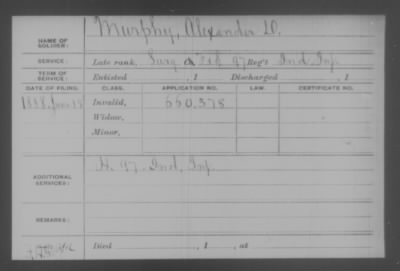 NAME OF SOLDIER: Murphy, Alexander D.
SERVICE: Late rank, Surg F&S 97 Reg't Ind. Inf.
TERM OF SERVICE: Enlisted , 1 Discharged , 1
DATE OF FILING. CLASS. APPLICATION NO. LAW. CERTIFICATE NO.
1888, June Invalid, 660,378
Widow,
Minor,
ADDITIONAL SERVICES: H. 97. Ind. Inf.
REMARKS:
Died , 1 , at